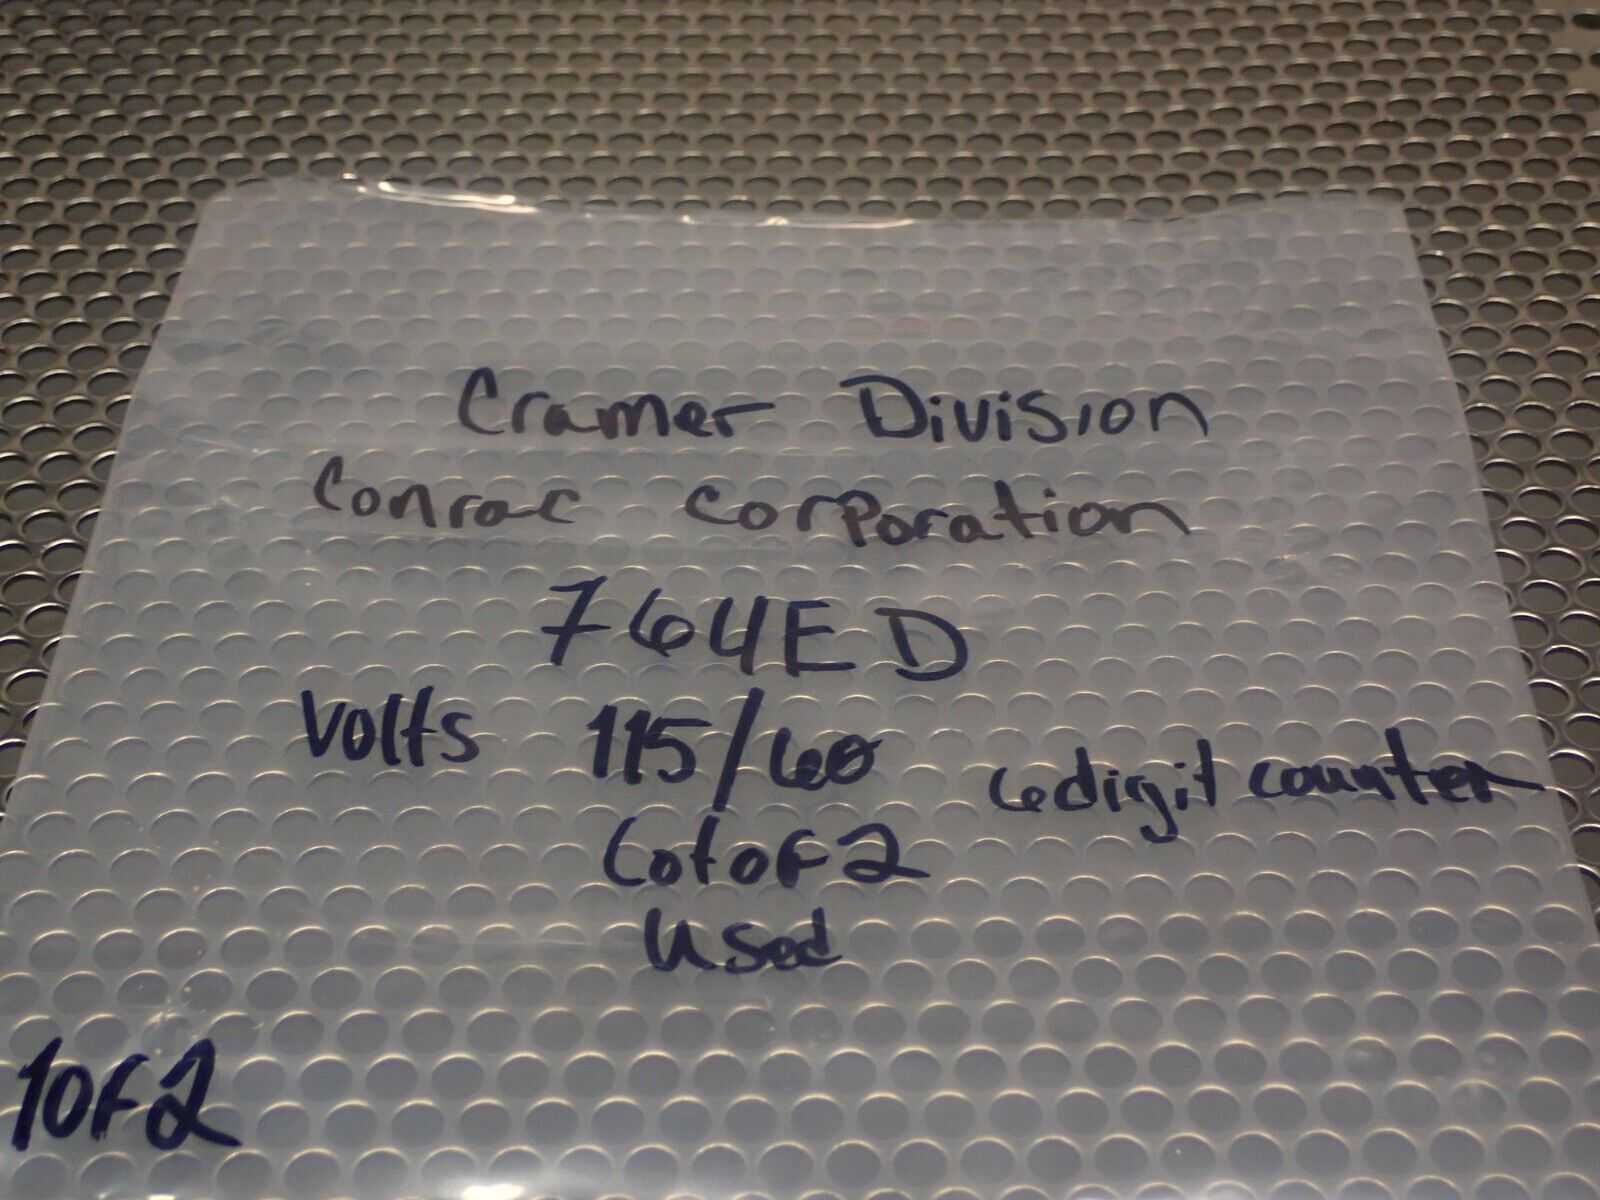 Cramer Division
Conrac Corporation
764ED
Volts 115/60 6digit counter
Lot of 2
Used
1 of 2